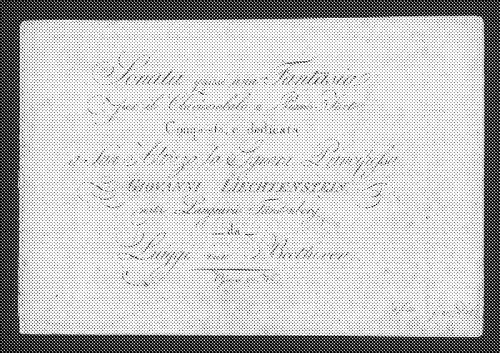 Sonata quasi una Fantasia
per il Clavicembalo o Piano-Forte
Composta, e dedicata
a Sua Altezza la Signora Principessa
GIOVANNI LIECHTENSTEIN
nata Langravia Fürstenberg
da
Luigi van Beethoven
Opera